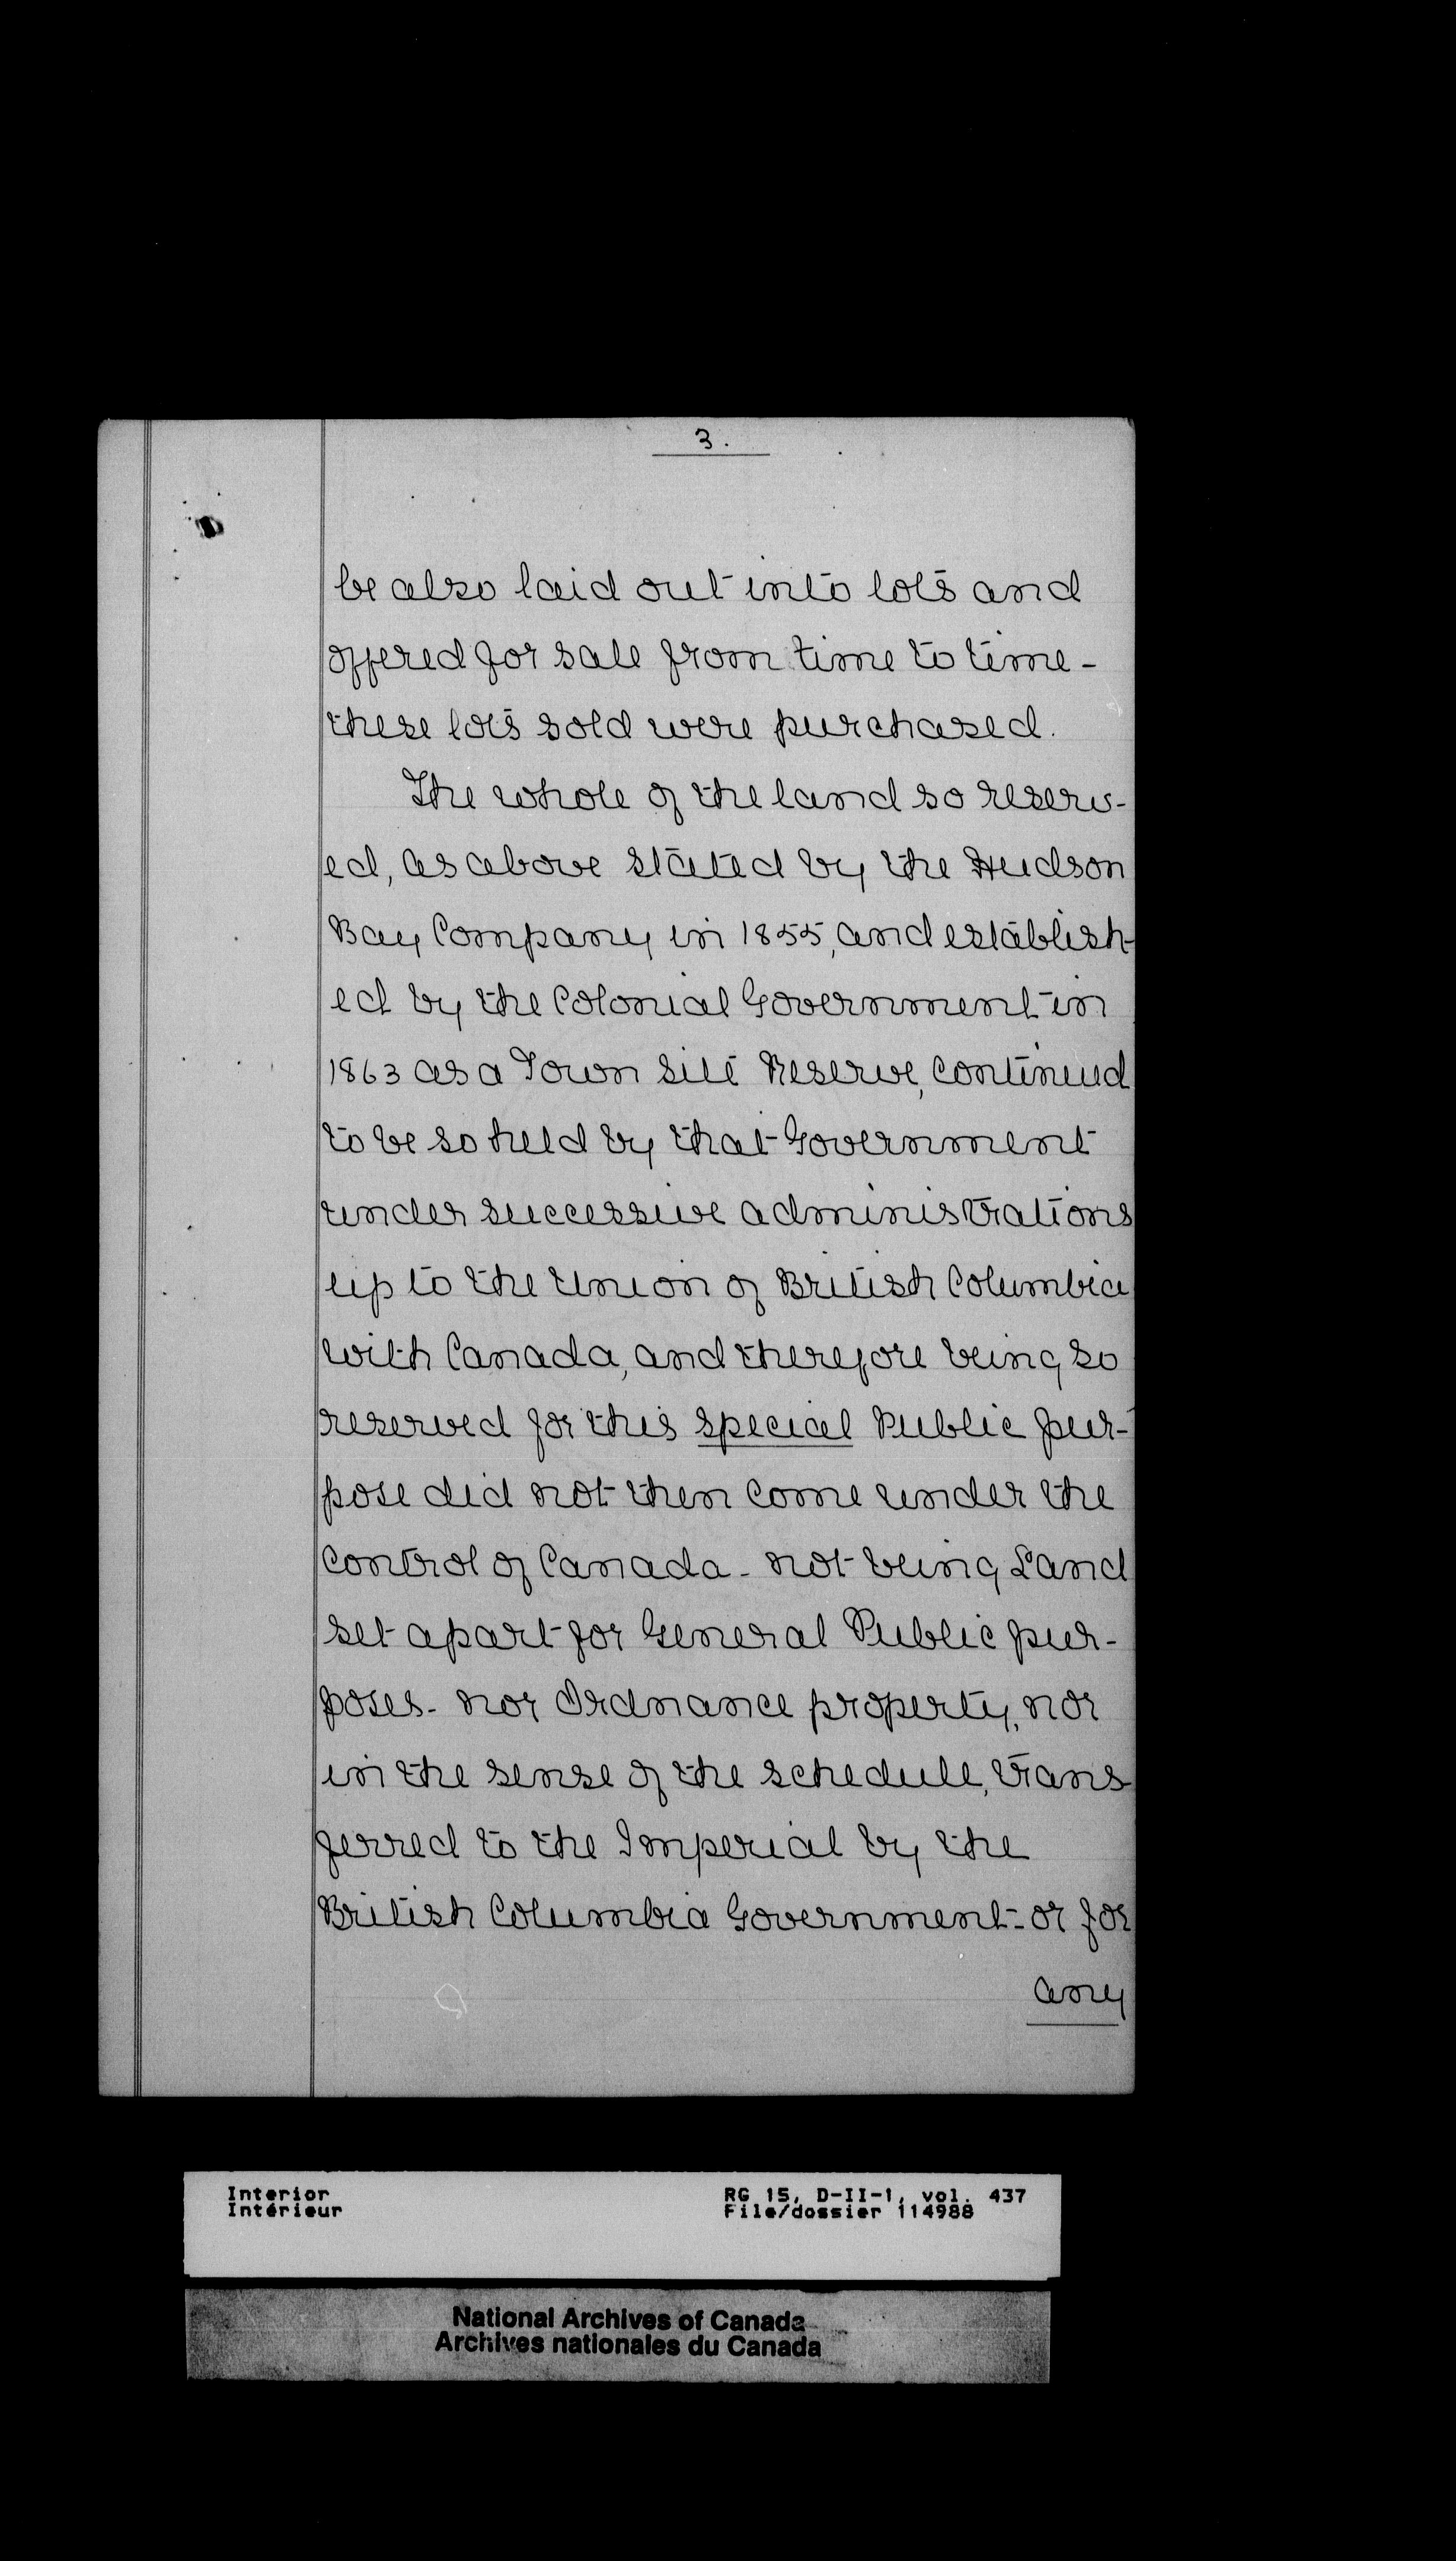 3.
be also laid out into lots and
offered for sale from time to time -
these lots sold were purchased.
The whole of the land so reserv-
ed, as above stated by the Hudson
Bay Company in 1855, and establish-
ed by the Colonial Government in
1863 as a Town Site Reserve, continued
to be so held by that Government
under successive administrations
up to the Union of British Columbia
with Canada, and therefore being so
reserved for this special Public pur-
pose did not then come under the
control of Canada - not being Land
set apart for General Public pur-
poses - nor Ordnance property, nor
in the sense of the schedule, trans-
ferred to the Imperial by the
British Columbia Government - or for
any
Interior
Intérieur
RG 15, D-II-1, vol. 437
File/dossier 114988
National Archives of Canada
Archives nationales du Canada